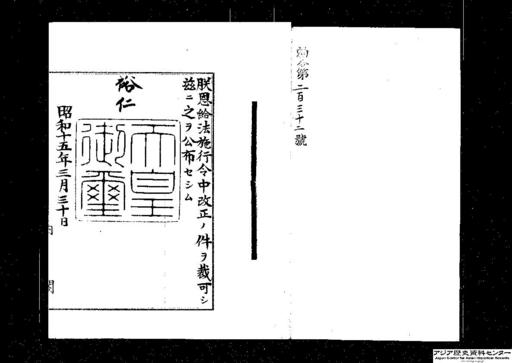 勅令第二百三十二號
朕恩給法施行令中改正ノ件ヲ裁可シ
茲ニ之ヲ公布セシム
裕仁
天皇
御璽
昭和十五年三月三十日
内
閣
アジア歴史資料センター
Japan Center for Asian Historical Records